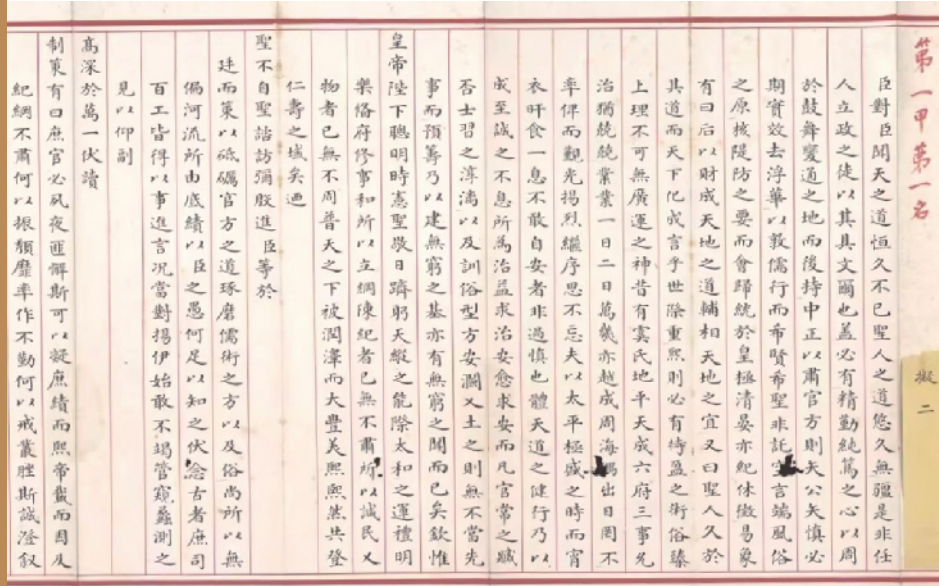 第一甲第一名
擬二
臣對臣聞天之道恒久不已聖人之道悠久無疆是非任
人立政之徒以其具文爾也蓋必有精勤純篤之心以周
於鼓舞變道之地而後持中正以肅官方則矢公矢慎必
期實效去浮華以敦儒行而希賢希聖非託空言端風俗
之原核隄防之要而會歸統於皇極清晏亦紀休徵易象
有曰后以財成天地之道輔相天地之宜又曰聖人久於
其道而天下化成言乎世際重熙則必有持盈之術俗臻
上理不可無廣運之神昔有虞氏地平天成六府三事允
治猶兢兢業業一日二日萬幾亦越成周海隅出日罔不
率俾而覲光揚烈繼序思不忘夫以太平極盛之時而宵
衣旰食一息不敢自安者非過慎也體天道之健行乃以
成至誠之不息所為治益求治安愈求安而凡官常之臧
否士習之淳漓以及訓俗型方安瀾乂土之則無不當先
事而預籌乃以建無窮之基亦有無窮之聞而已矣欽惟
皇帝陛下聰明時憲聖敬日躋躬天縱之能際太和之運禮明
樂備府修事和所以立綱陳紀者已無不肅所以諴民乂
物者已無不周普天之下被潤澤而大豐美熙熙然共登
仁壽之域矣迺
聖不自聖詒訪彌殷進臣等於
廷而策以砥礪官方之道琢磨儒術之方以及俗尚所以無
偏河流所由底績以臣之愚何足以知之伏念古者庶司
百工皆得以事進言況當對揚伊始敢不竭管窺蠡測之
見以仰副
高深於萬一伏讀
制策有曰庶官必夙夜匪懈斯可以凝庶績而熙帝載而因及
紀綱不肅何以振頹靡率作不勤何以戒叢脞斯誠澄敘